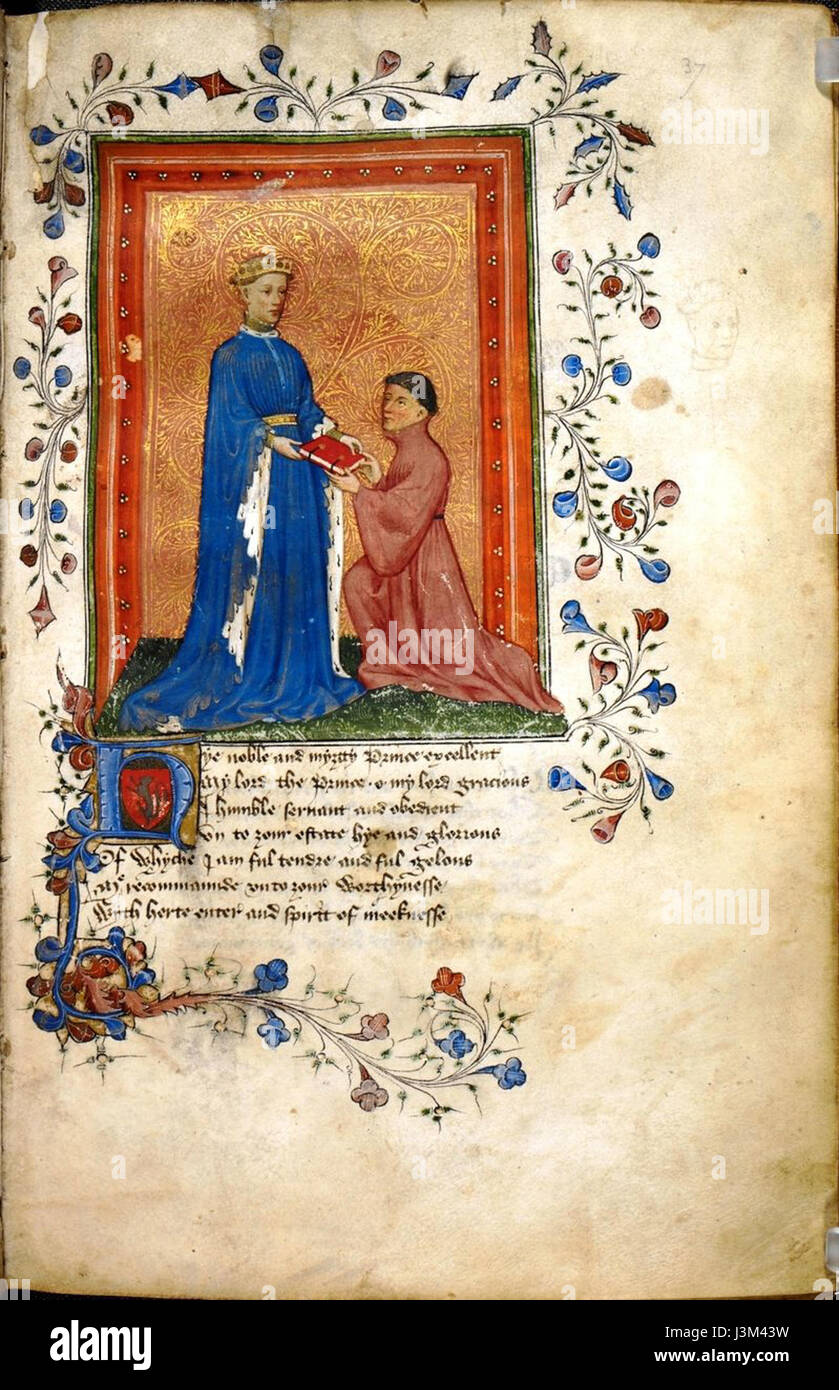 37
Hye noble and myghty Prince excellent
My lord the Prince o my lord gracious
I humble seruant and obedient
Vn to your estate hye and glorious
Of whyche I am ful tendre and ful gelous
Me recommaunde vnto your worthynesse
Wyth herte enter and spirit of meeknesse
alamy
alamy
Image ID: J3M43W
www.alamy.com